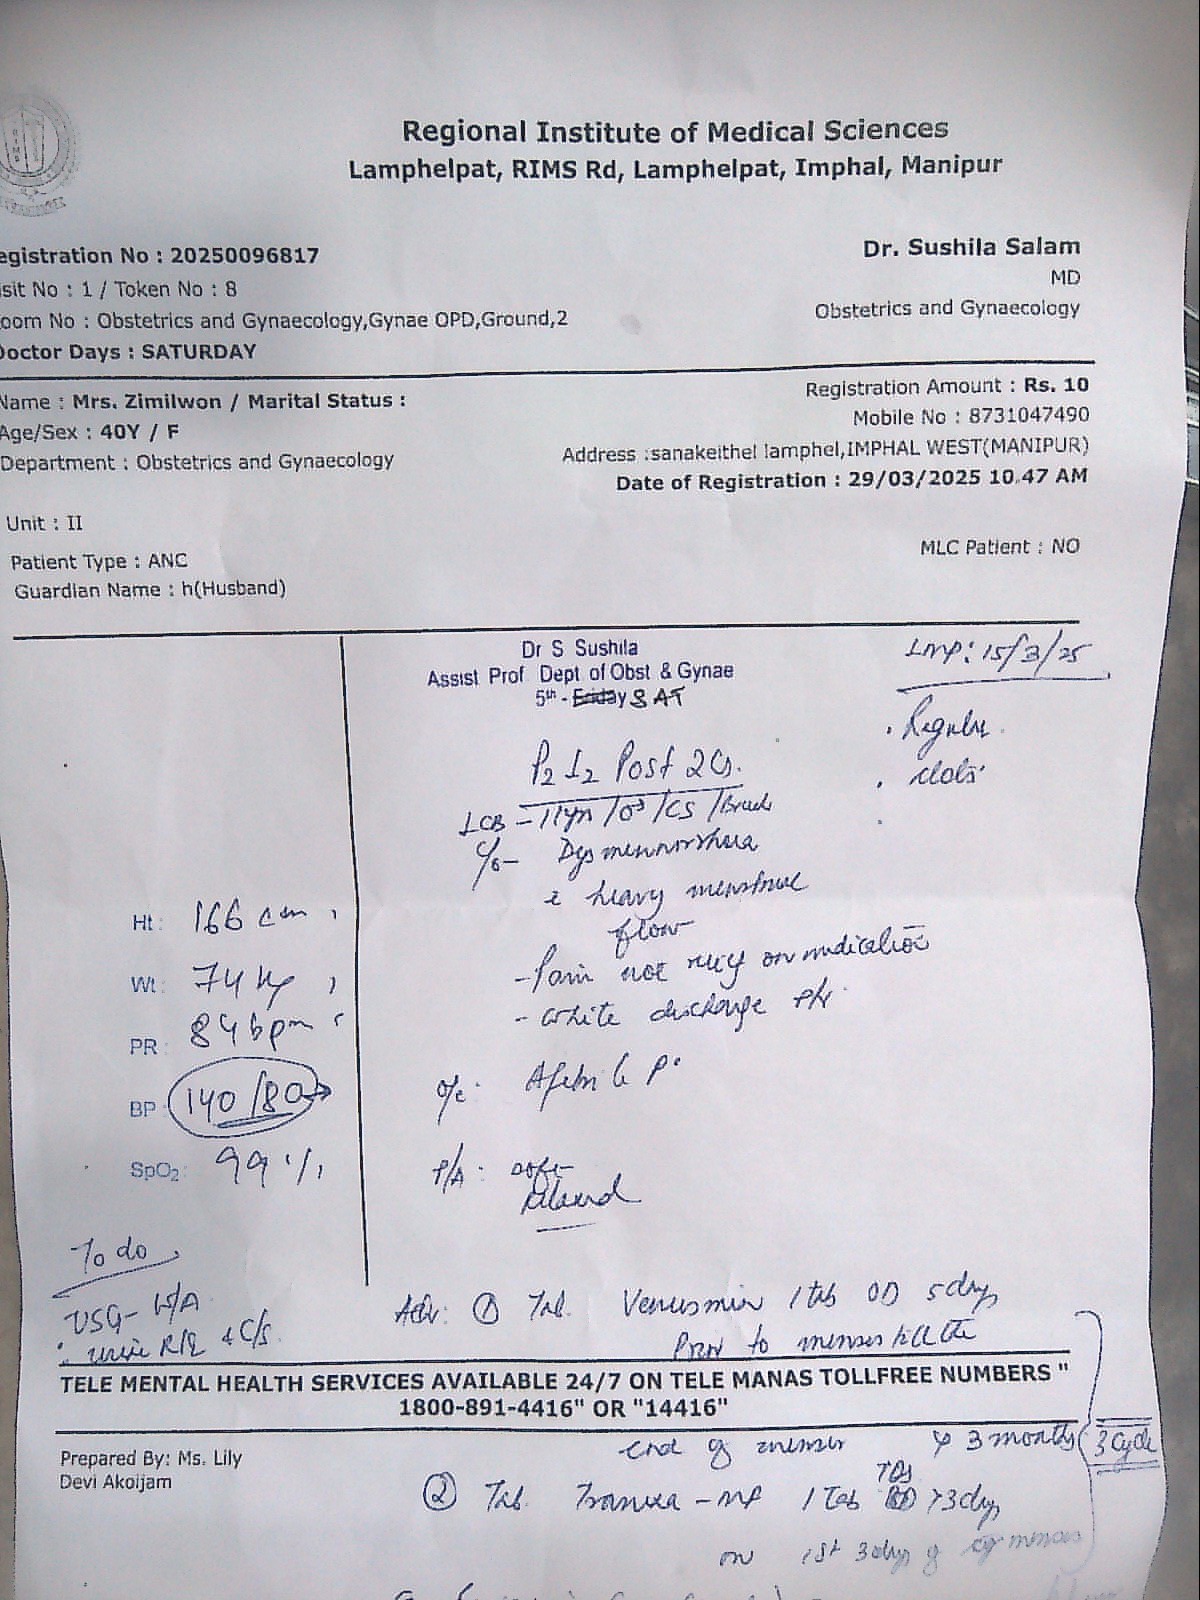 Regional Institute of Medical Sciences
Lamphelpat, RIMS Rd, Lamphelpat, Imphal, Manipur
egistration No : 20250096817
Dr. Sushila Salam
isit No : 1 / Token No : 8
MD
oom No : Obstetrics and Gynaecology,Gynae OPD,Ground,2
Obstetrics and Gynaecology
Doctor Days : SATURDAY
Name : Mrs. Zimilwon / Marital Status :
Registration Amount : Rs. 10
Age/Sex : 40Y / F
Mobile No : 8731047490
Department : Obstetrics and Gynaecology
Address :sanakeithel lamphel,IMPHAL WEST(MANIPUR)
Date of Registration : 29/03/2025 10.47 AM
Unit : II
Patient Type : ANC
MLC Patient : NO
Guardian Name : h(Husband)
Dr S Sushila
Assist Prof Dept of Obst & Gynae
5th - Friday SAT
LMP: 15/3/25
. Regular
. clots
P2 L2 Post 2 CS.
LCB - 11yrs / /CS /
c/o- Dysmenorrhoea
c heavy menstrual
flow
- Pain not on medication
- White discharge P/V.
Ht: 166 cm
Wt: 74 kg
PR: 84 bpm
BP: 140/80
SpO2: 99 %
o/e: Afebrile
P/A: soft
relaxed
To do
USG- W/A
urine R/E + C/S.
Adv: 1 Tab. 1 tab OD 5 days
Prior to menses till the
TELE MENTAL HEALTH SERVICES AVAILABLE 24/7 ON TELE MANAS TOLLFREE NUMBERS "
1800-891-4416" OR "14416"
end of menses x 3 months 3 cycle
Prepared By: Ms. Lily
Devi Akoijam
2 Tab. - MF 1 Tab TDS BD x 3 days
on 1st 3 days of menses